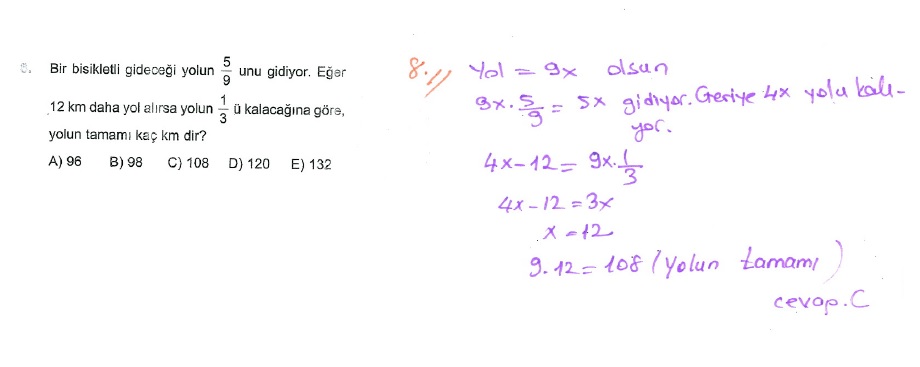 8. Bir bisikletli gideceği yolun 5/9 unu gidiyor. Eğer
12 km daha yol alırsa yolun 1/3 ü kalacağına göre,
yolun tamamı kaç km dir?
A) 96 B) 98 C) 108 D) 120 E) 132
8.// Yol = 9x olsun
9x.5/9 = 5x gidiyor. Geriye 4x yolu kalı-
yor.
4x-12 = 9x.1/3
4x-12 = 3x
x = 12
9.12 = 108 (Yolun tamamı)
cevap. C